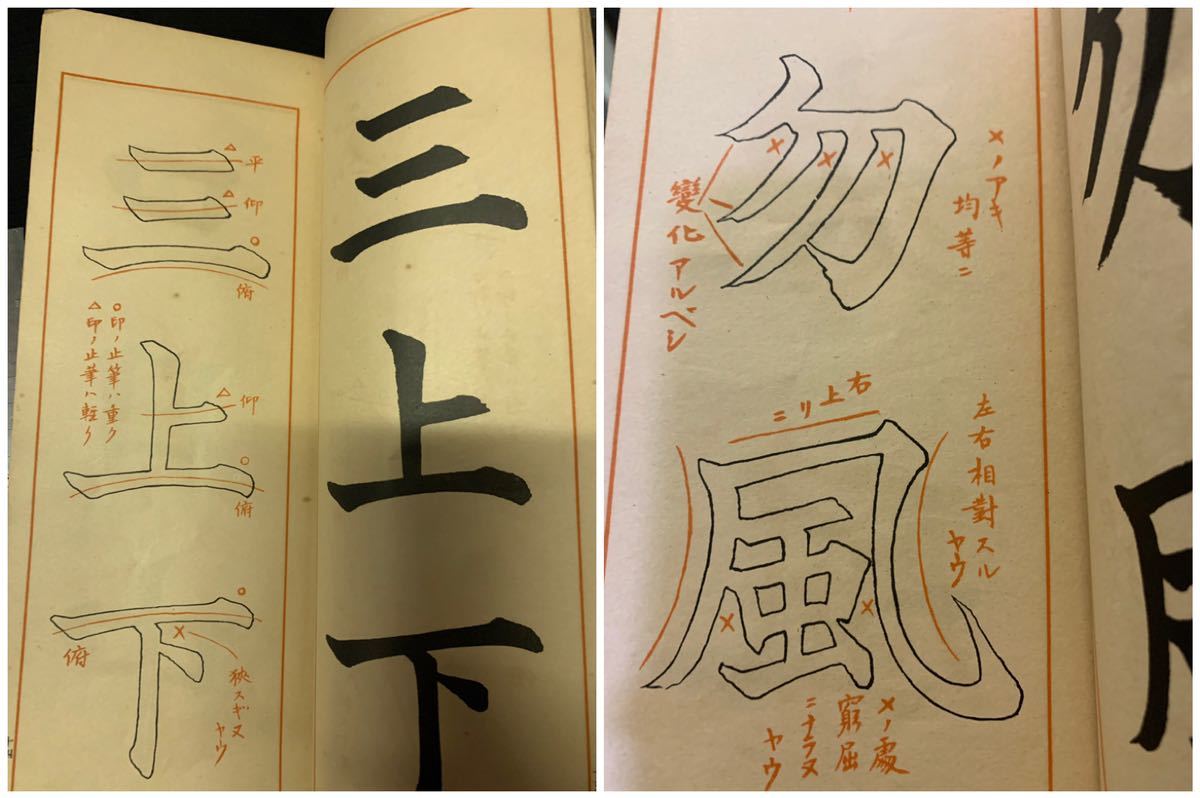 三
上
下
三
平
仰
俯
○印ノ止筆ハ重ク
△印ノ止筆ハ軽ク
上
仰
俯
下
俯
狹スギヌ
ヤウ
十四
勿
×ノアキ
均等ニ
變化アルベシ
風
右上リニ
左右相對スル
ヤウ
×ノ處
窮屈
ニナラヌ
ヤウ